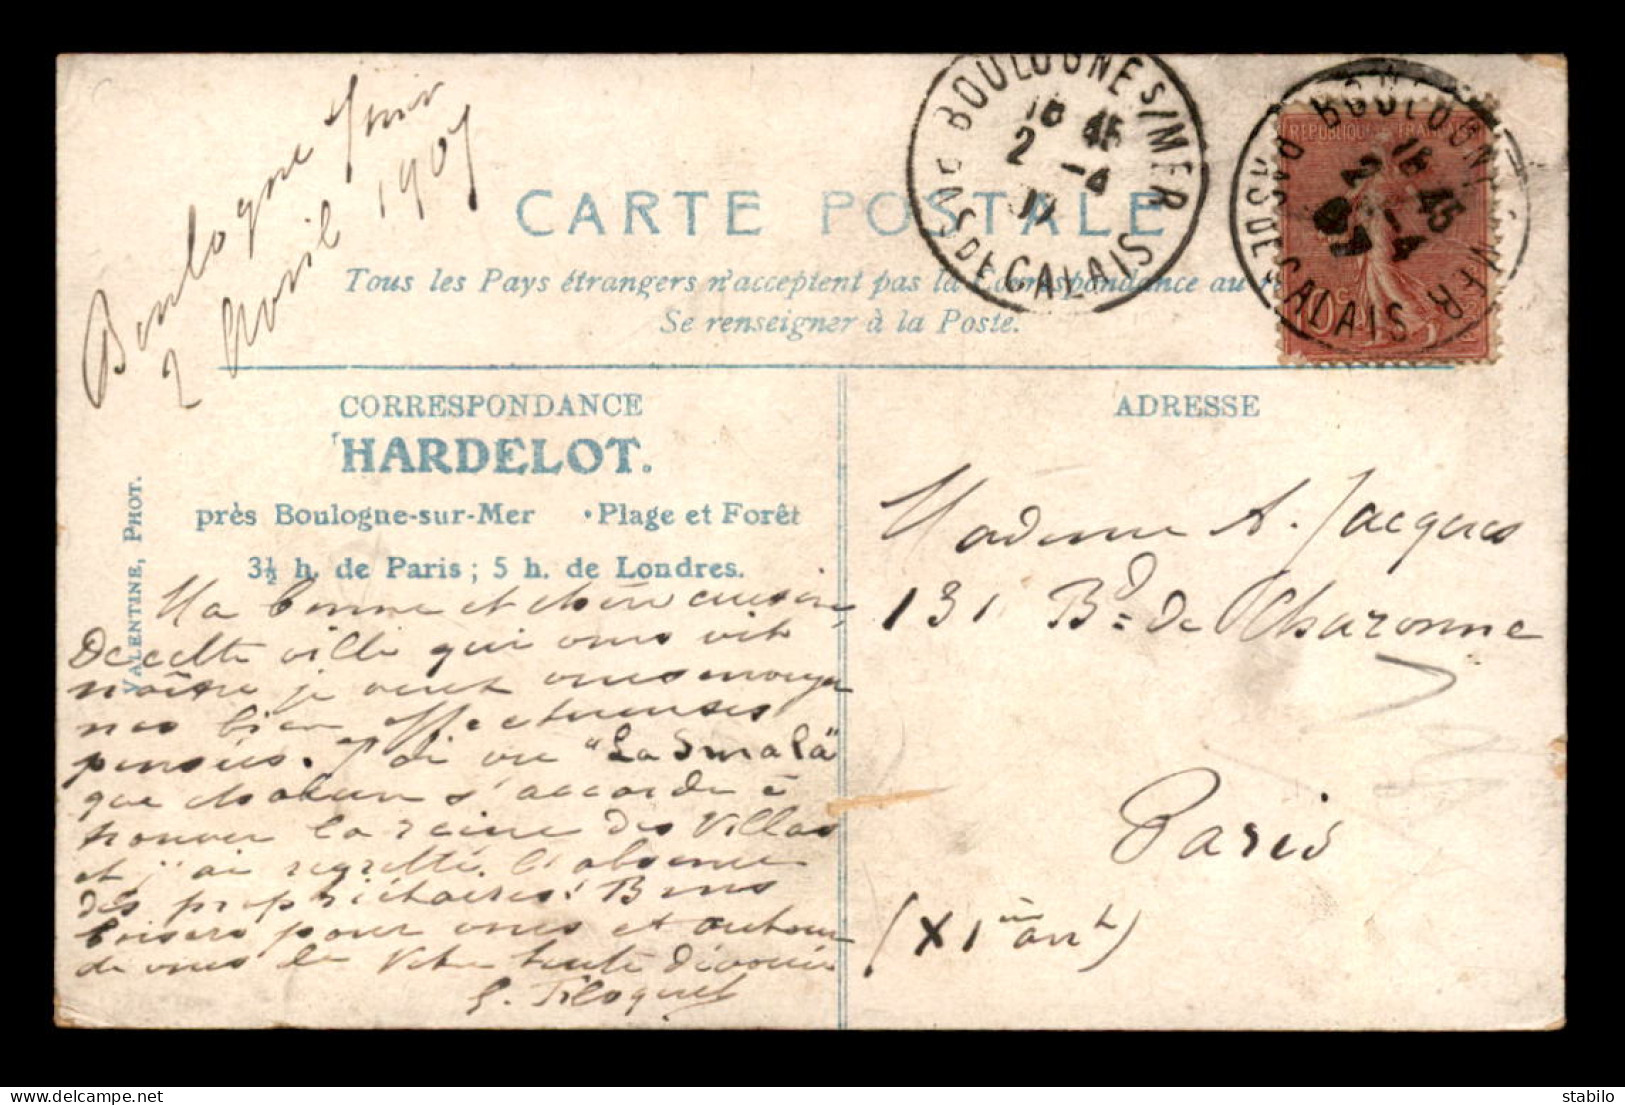 Boulogne s/mer
2 Avril 1907
CARTE POSTALE
Tous les Pays étrangers n'acceptent pas la Correspondance au
Se renseigner à la Poste.
BOULOGNE S/MER
PAS DE CALAIS
18 45
2 -4
07
BOULOGNE S MER
PAS DE CALAIS
18 45
2 -4
REPUBLIQUE FRANÇAISE
10
CORRESPONDANCE
HARDELOT.
près Boulogne-sur-Mer • Plage et Forêt
3½ h. de Paris ; 5 h. de Londres.
VALENTINE, PHOT.
Ma bonne et chère cousine,
De cette ville qui vous vit
naître je veux vous envoyer
nos bien affectueuses
pensées. J'ai vu "La Smala"
que chacun s'accorde à
trouver la reine des Villas
et j'ai regretté l'absence
des propriétaires! Bons
baisers pour vous et autour
de vous de Votre toute dévouée
ADRESSE
Madame A. Jacques
131 Bd de Charonne
Paris
(XIème arrt)
delcampe.net
stabilo